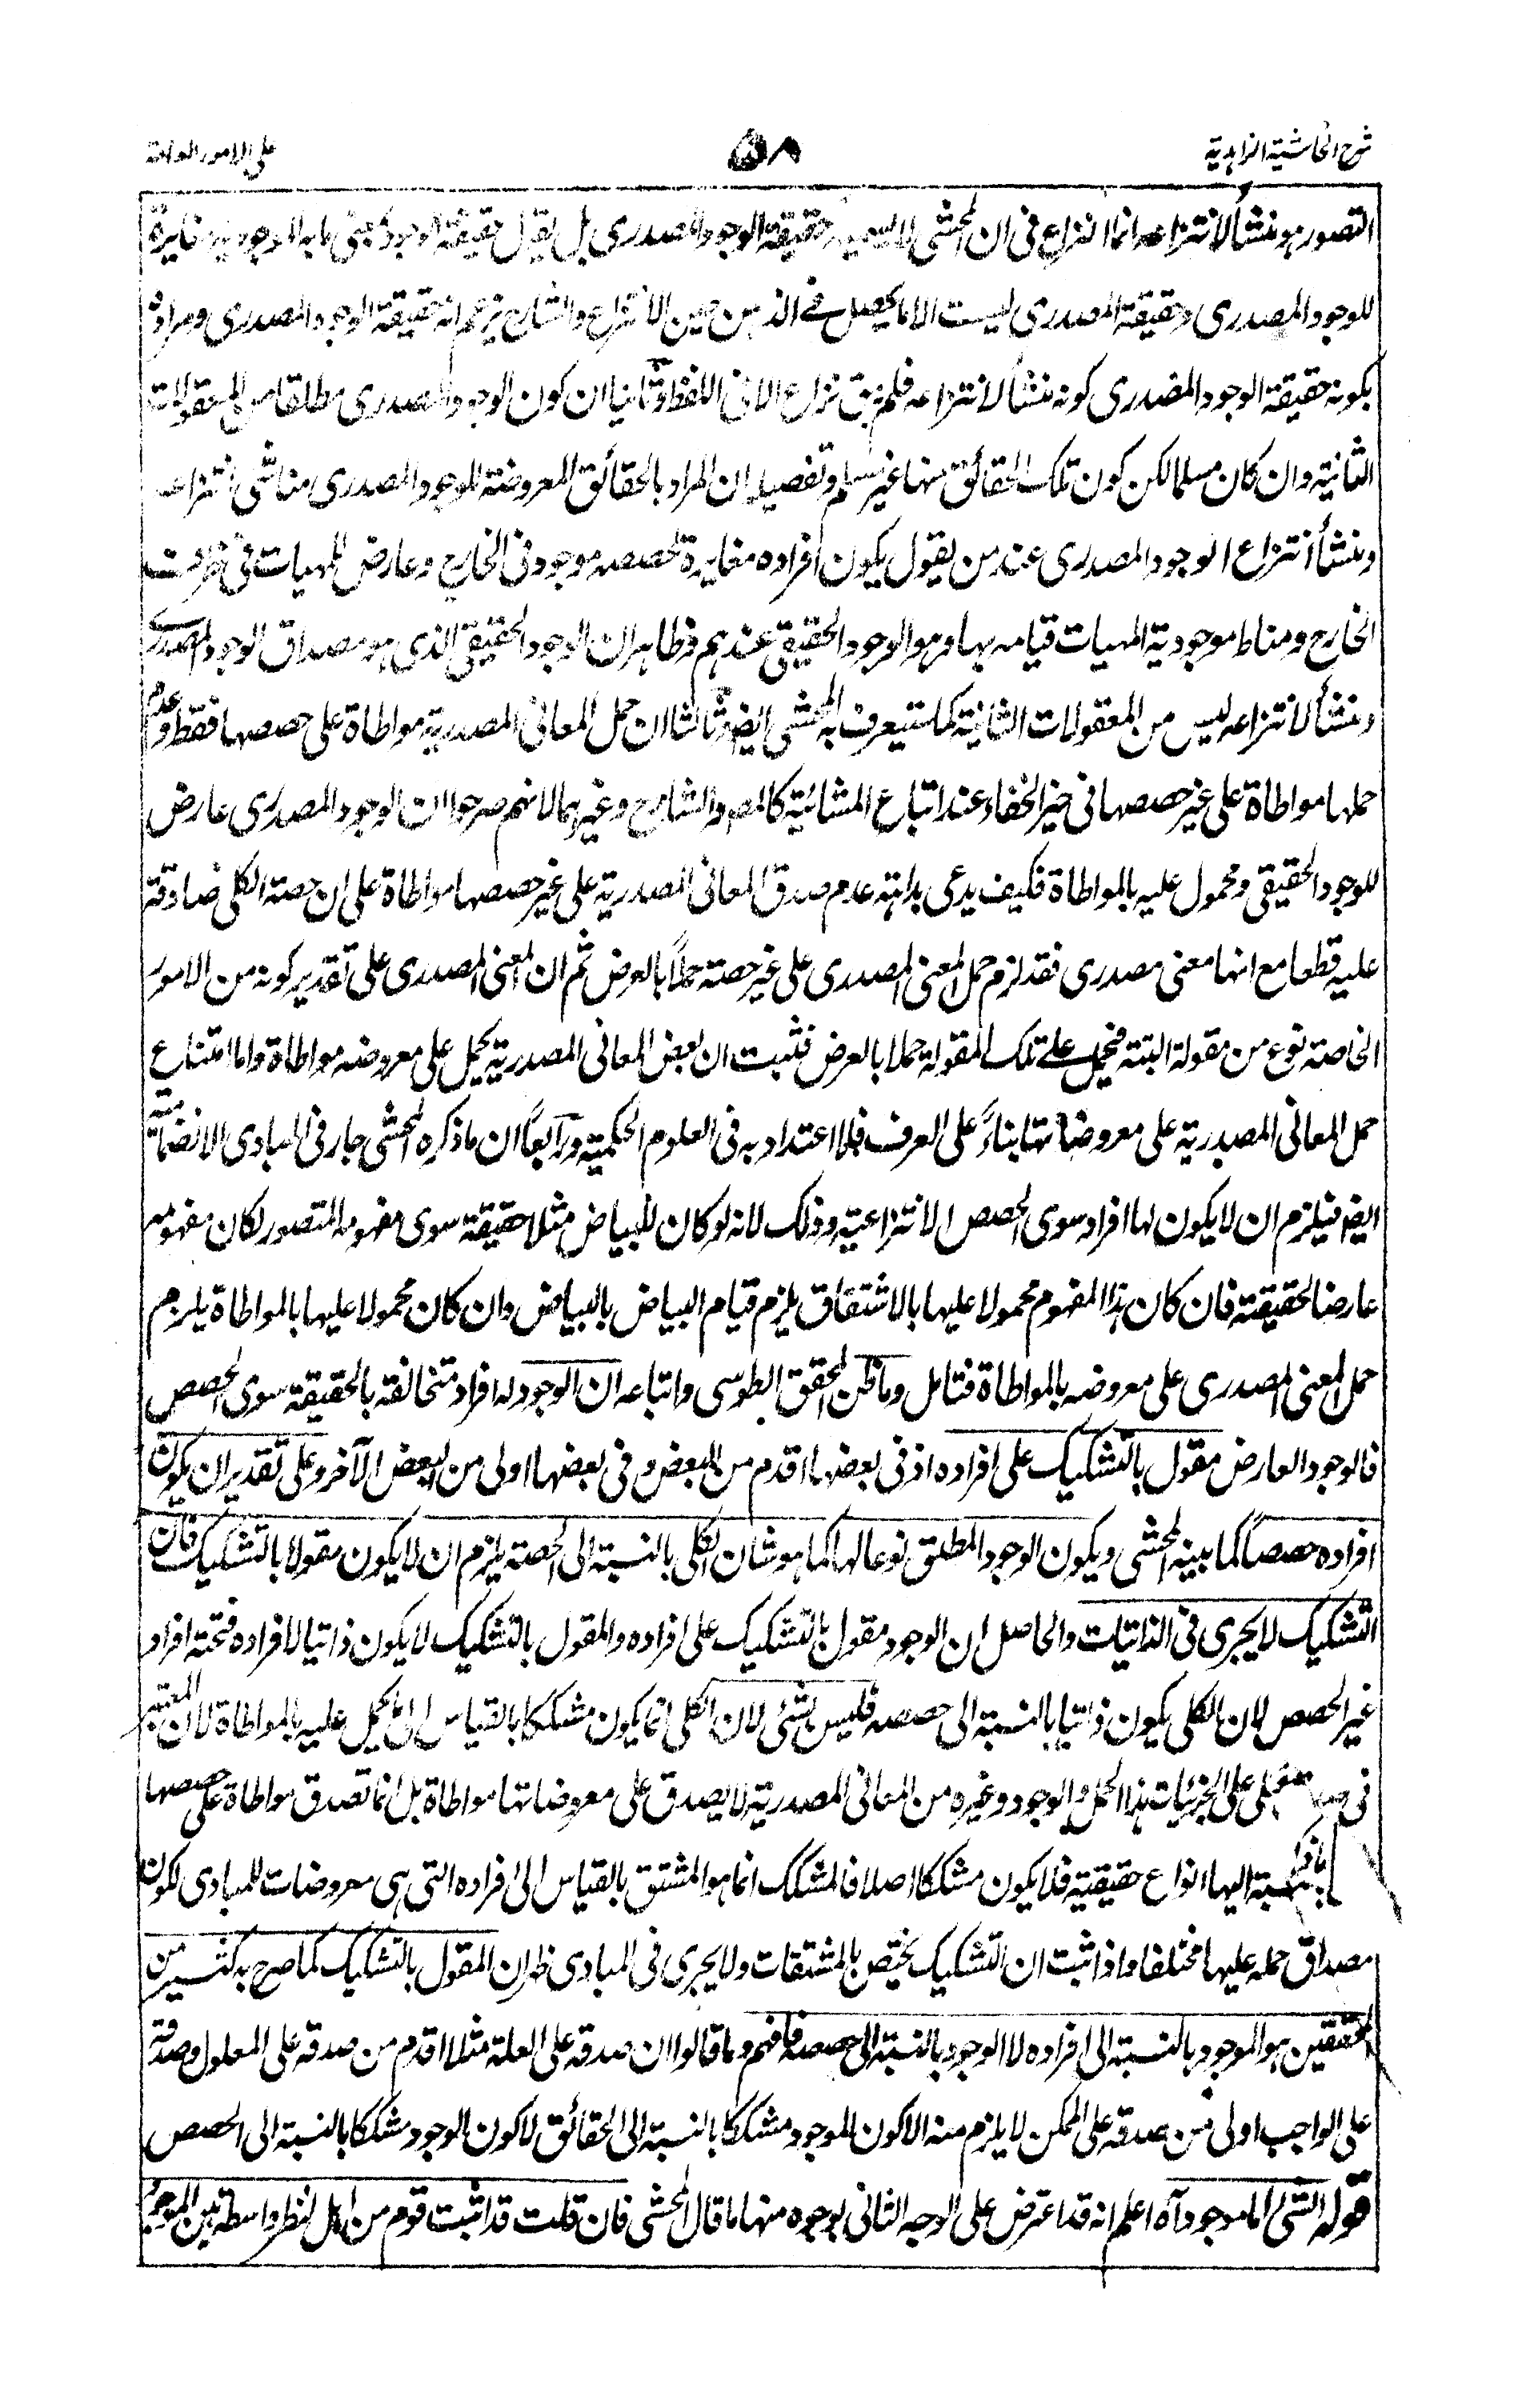 شرح الحاشية الزاهدية
٥٨
على الامور العامة
التصور هو منشأ لانتزاعه انما النزاع فى ان المحشى لا يسميه حقيقة الوجود المصدرى بل يقول حقيقة الوجود بمعنى ما به الموجودية مغايرة
للوجود المصدرى وحقيقة المصدرى ليست الا ما يحصل فى الذهن حين الانتزاع والشارح يزعم انه حقيقة الوجود المصدرى ومراده
بكونه حقيقة الوجود المصدرى كونه منشأ لانتزاعه فلم يبق نزاع الا فى اللفظ وثانيا ان كون الوجود المصدرى مطلقا من المعقولات
الثانية وان كان مسلما لكن كون تلك الحقائق منها غير مسلم وتفصيله ان المراد بالحقائق المعروضة للوجود المصدرى مناشى انتزاعه
ومنشأ انتزاع الوجود المصدرى عند من يقول يكون افراده مغايرة لحصصه موجود فى الخارج وعارض للمهيات فى ظرف
الخارج ومناط موجودية المهيات قيامه بها وهو الوجود الحقيقى عندهم فظاهر ان الوجود الحقيقى الذى هو مصداق الوجود المصدرى
ومنشأ لانتزاعه ليس من المعقولات الثانية كما ستيعرف به المحشى ايضا وثالثا ان حمل المعانى المصدرية مواطاة على حصصها فقط وعدم
حملها مواطاة على غير حصصها فى حيز الخفاء عند اتباع المشائية كالمصـ والشارح وغيرهما لانهم صرحوا ان الوجود المصدرى عارض
للوجود الحقيقى ومحمول عليه بالمواطاة فكيف يدعى بداهة عدم صدق المعانى المصدرية على غير حصصها مواطاة على ان حصة الكلى صادقة
عليه قطعا مع انها معنى مصدرى فقد لزم حمل المعنى المصدرى على غير حصته حملاً بالعرض ثم ان المعنى المصدرى على تقدير كونه من الامور
الخاصة نوع من مقولة البتة فيحمل عليه تلك المقولة حملا بالعرض فثبت ان بعض المعانى المصدرية يحمل على معروضه مواطاة واما امتناع
حمل المعانى المصدرية على معروضاتها بناءً على العرف فلا اعتداد به فى العلوم الحكمية ورابعاً ان ما ذكره المحشى جار فى المبادى الانضمامية
ايضا فيلزم ان لا يكون لها افراد سوى الحصص الانتزاعية وذلك لانه لو كان للبياض مثلا حقيقة سوى مفهومه المتصور لكان مفهومه
عارضا لحقيقته فان كان هذا المفهوم محمولا عليها بالاشتقاق يلزم قيام البياض بالبياض وان كان محمولا عليها بالمواطاة يلزم
حمل المعنى المصدرى على معروضه بالمواطاة فتامل وما ظن المحقق الطوسى واتباعه ان الوجود له افراد متخالفة بالحقيقة سوى الحصص
فالوجود العارض مقول بالتشكيك على افراده اذ فى بعضها اقدم من البعض وفى بعضها اولى من البعض الآخر وعلى تقدير ان يكون
افراده حصصاً كما بينه المحشى ويكون الوجود المطلق نوعا لها كما هو شان الكلى بالنسبة الى الحصة يلزم ان لا يكون مقولا بالتشكيك فان
التشكيك لا يجرى فى الذاتيات والحاصل ان الوجود مقول بالتشكيك على افراده والمقول بالتشكيك لا يكون ذاتيا لافراده فثمة افراد
غير الحصص لان الكلى يكون ذاتيا بالنسبة الى حصصه فليس بشئ لان الكلى انما يكون مشككا بالقياس الى ما يحمل عليه بالمواطاة لان المعتبر
فى على الجزئيات هذا الحمل والوجود وغيره من المعانى المصدرية لا يصدق على معروضاتها مواطاة بل انما تصدق مواطاة على حصصها
بالنسبة اليها انواع حقيقية فلا يكون مشككا اصلا فالمشكك انما هو المشتق بالقياس الى افراده التى هى معروضات للمبادى لكون
مصداق حمله عليها مختلفا واذا ثبت ان التشكيك يختص بالمشتقات ولا يجرى فى المبادى ظهر ان المقول بالتشكيك كما صرح به كثير من
المحققين هو الموجود بالنسبة الى افراده لا الوجود بالنسبة الى حصصه فافهم وما قالوا ان صدقه على العلة مثلا اقدم من صدقه على المعلول وصدقه
على الواجب اولى من صدقه على الممكن لا يلزم منه الا كون الموجود مشككا بالنسبة الى الحقائق لا كون الوجود مشككا بالنسبة الى الحصص
قوله الشئ اما موجود آه اعلم انه قد اعترض على الوجه الثانى بوجوه منها ما قال المحشى فان قلت قد اثبت قوم من اهل النظر واسطة بين الموجود